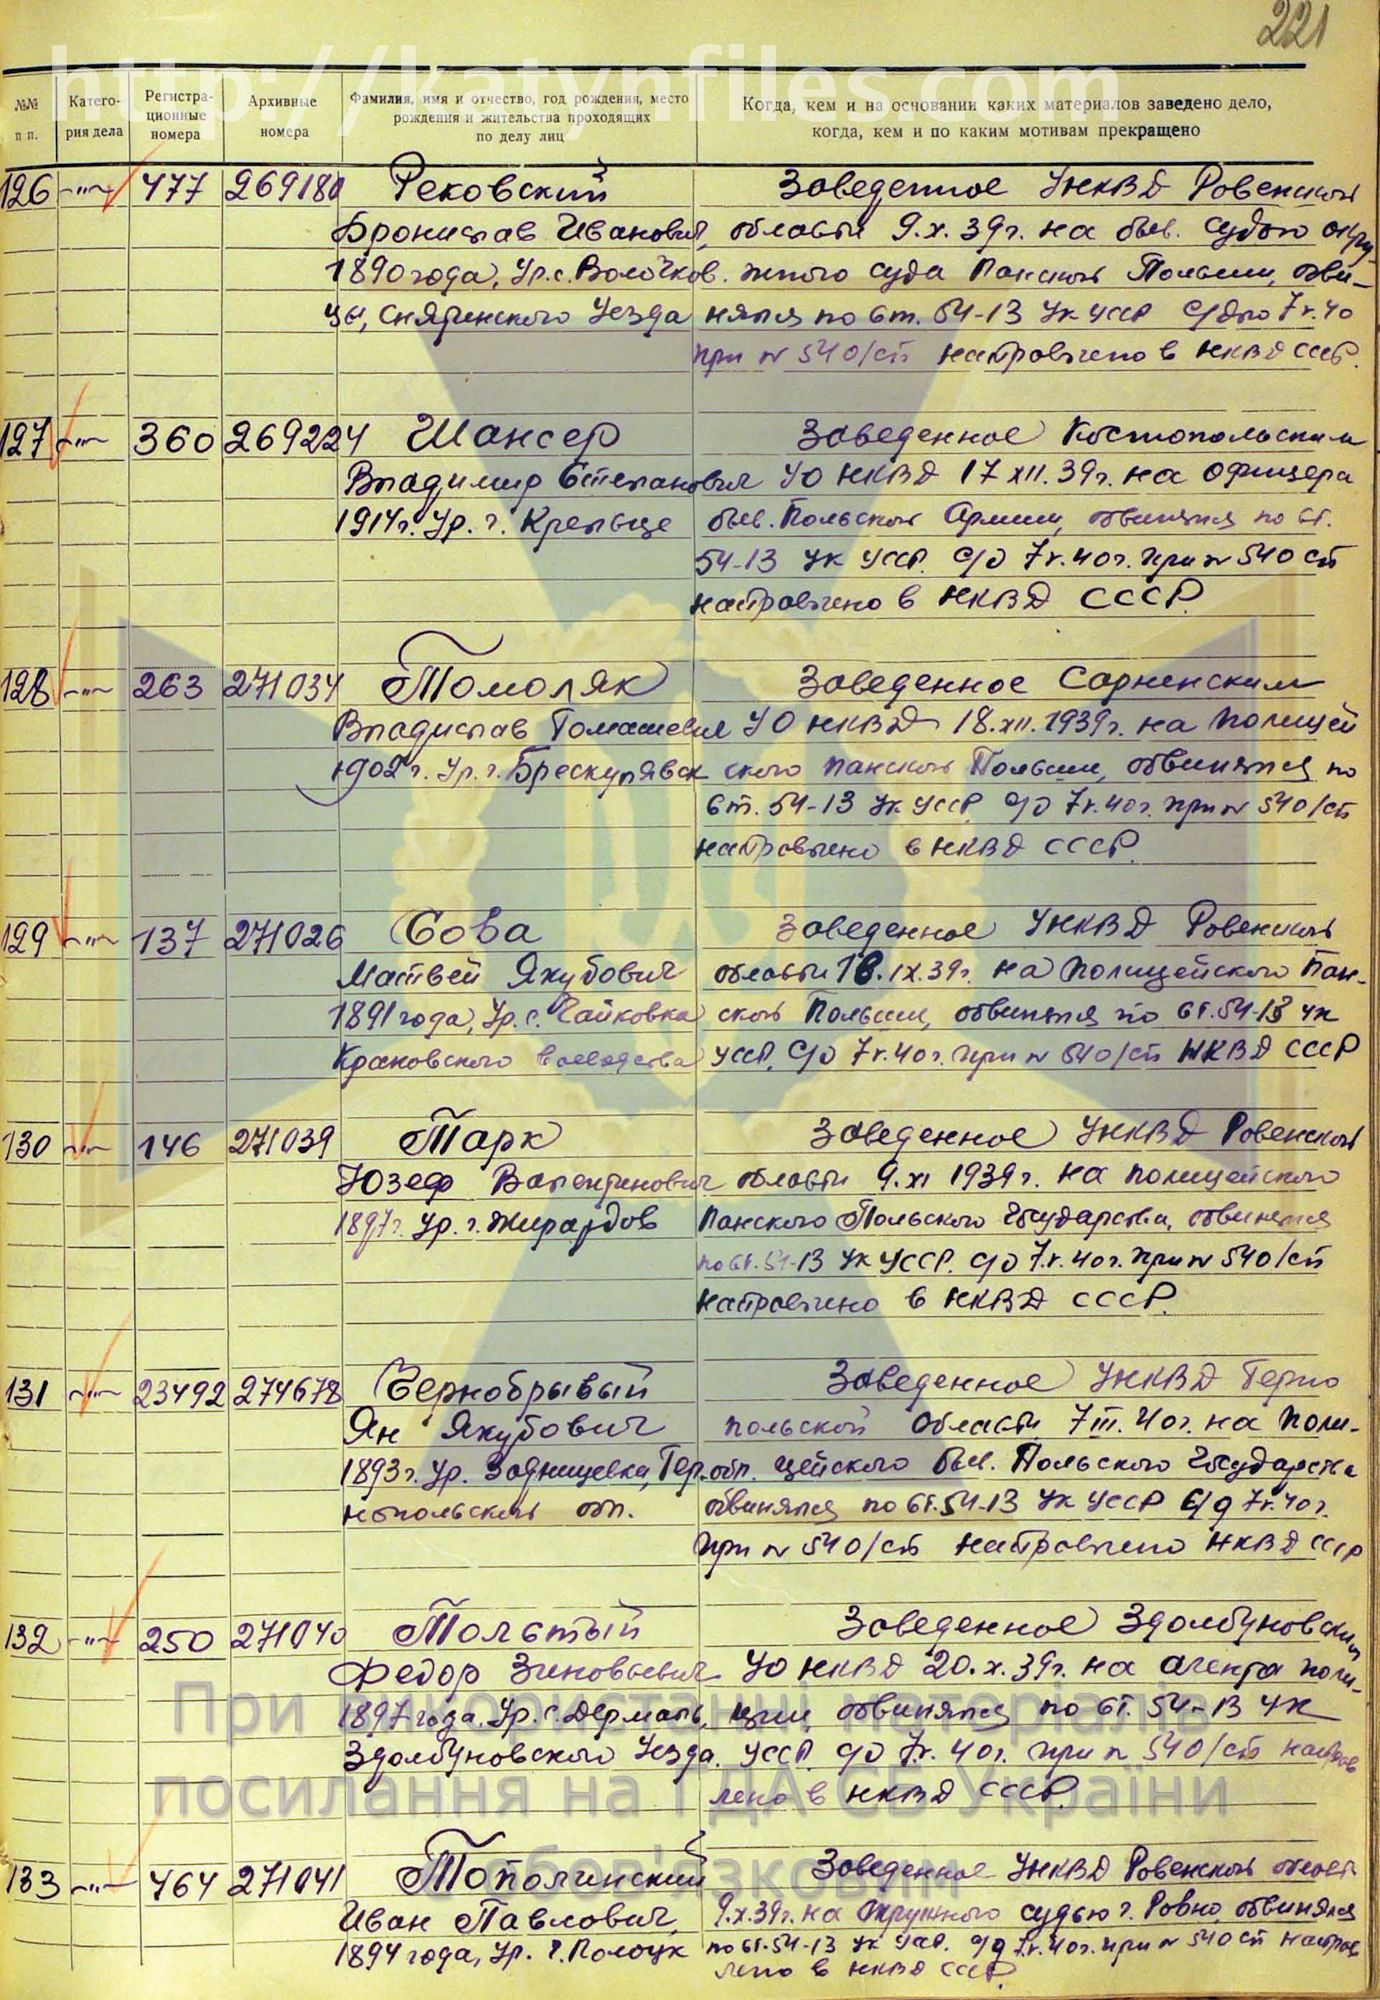 221
http://katynfiles.com
№№ п п.
Катего- рия дела
Регистра- ционные номера
Архивные номера
Фамилия, имя и отчество, год рождения, место рождения и жительства проходящих по делу лиц
Когда, кем и на основании каких материалов заведено дело, когда, кем и по каким мотивам прекращено
126 -"- 477 269180 Рековский Заведенное УНКВД Ровенской
Бронислав Иванович, области 9.X.39г. на быв. судью окру-
1890 года, Ур. с. Волочков. жного суда Панской Польши, обви-
цы, Снятинского Уезда нялся по ст. 54-13 УК УССР С/дло 7.V.40
при № 540/сп направлено в НКВД СССР.
127 -"- 360 269224 Шансер Заведенное Костопольским
Владимир Степанович УО НКВД 17 XII.39г. на офицера
1914г. Ур. г. Крельце быв. Польской Армии, обвинялся по ст.
54-13 УК УССР. С/д 7.V.40г. при № 540 сп
направлено в НКВД СССР.
128 -"- 263 271034 Томоляк Заведенное Сарненским
Владислав Томашевич УО НКВД 18.XII.1939г. на полицей
1902г. Ур. г. Брескулявск ского панской Польши, обвинялся по
ст. 54-13 УК УССР. С/д 7.V.40г. при № 540/сп
направлено в НКВД СССР.
129 -"- 137 271026 Сова Заведенное УНКВД Ровенской
Матвей Якубович области 18.IX.39г. на полицейского Пан-
1891 года, Ур. с. Чайковка ской Польши, обвинялся по ст. 54-13 УК
Краковского воеводства УССР. С/д 7.V.40г. при № 540/сп НКВД СССР
130 -"- 146 271039 Тарк Заведенное УНКВД Ровенской
Юзеф Валентинович области 9.XI 1939г. на полицейского
1897г. Ур. г. Жирардов Панского Польского Государства, обвинялся
по ст. 54-13 УК УССР. С/д 7.V.40г. при № 540/сп
направлено в НКВД СССР.
131 -"- 23492 274678 Чернобрывый Заведенное УНКВД Терно
Ян Якубович польской области 7 III.40г. на поли-
1893г. Ур. Заднищевка, Тер. обл. цейского быв. Польского Государства
нопольской обл. обвинялся по ст. 54-13 УК УССР С/д 7.V.40г.
при № 540/сп направлено НКВД СССР
132 -"- 250 271040 Толстый Заведенное Здолбуновским
Федор Зиновьевич УО НКВД 20.X.39г. на агента поли-
1897 года, Ур. с. Дермань, ции обвинялся по ст. 54-13 УК
Здолбуновского Уезда. УССР. С/д 7.V.40г. при № 540/сп направ
лено в НКВД СССР.
133 -"- 464 271041 Тополинский Заведенное УНКВД Ровенской област
Иван Павлович, 9.X.39г. на окружного судью г. Ровно, обвинялся
1894 года, Ур. г. Полоцк по ст. 54-13 УК УССР. С/д 7.V.40г. при № 540 сп направ
лено в НКВД СССР.
При використанні матеріалів
посилання на ГДА СБ України
обов'язковим